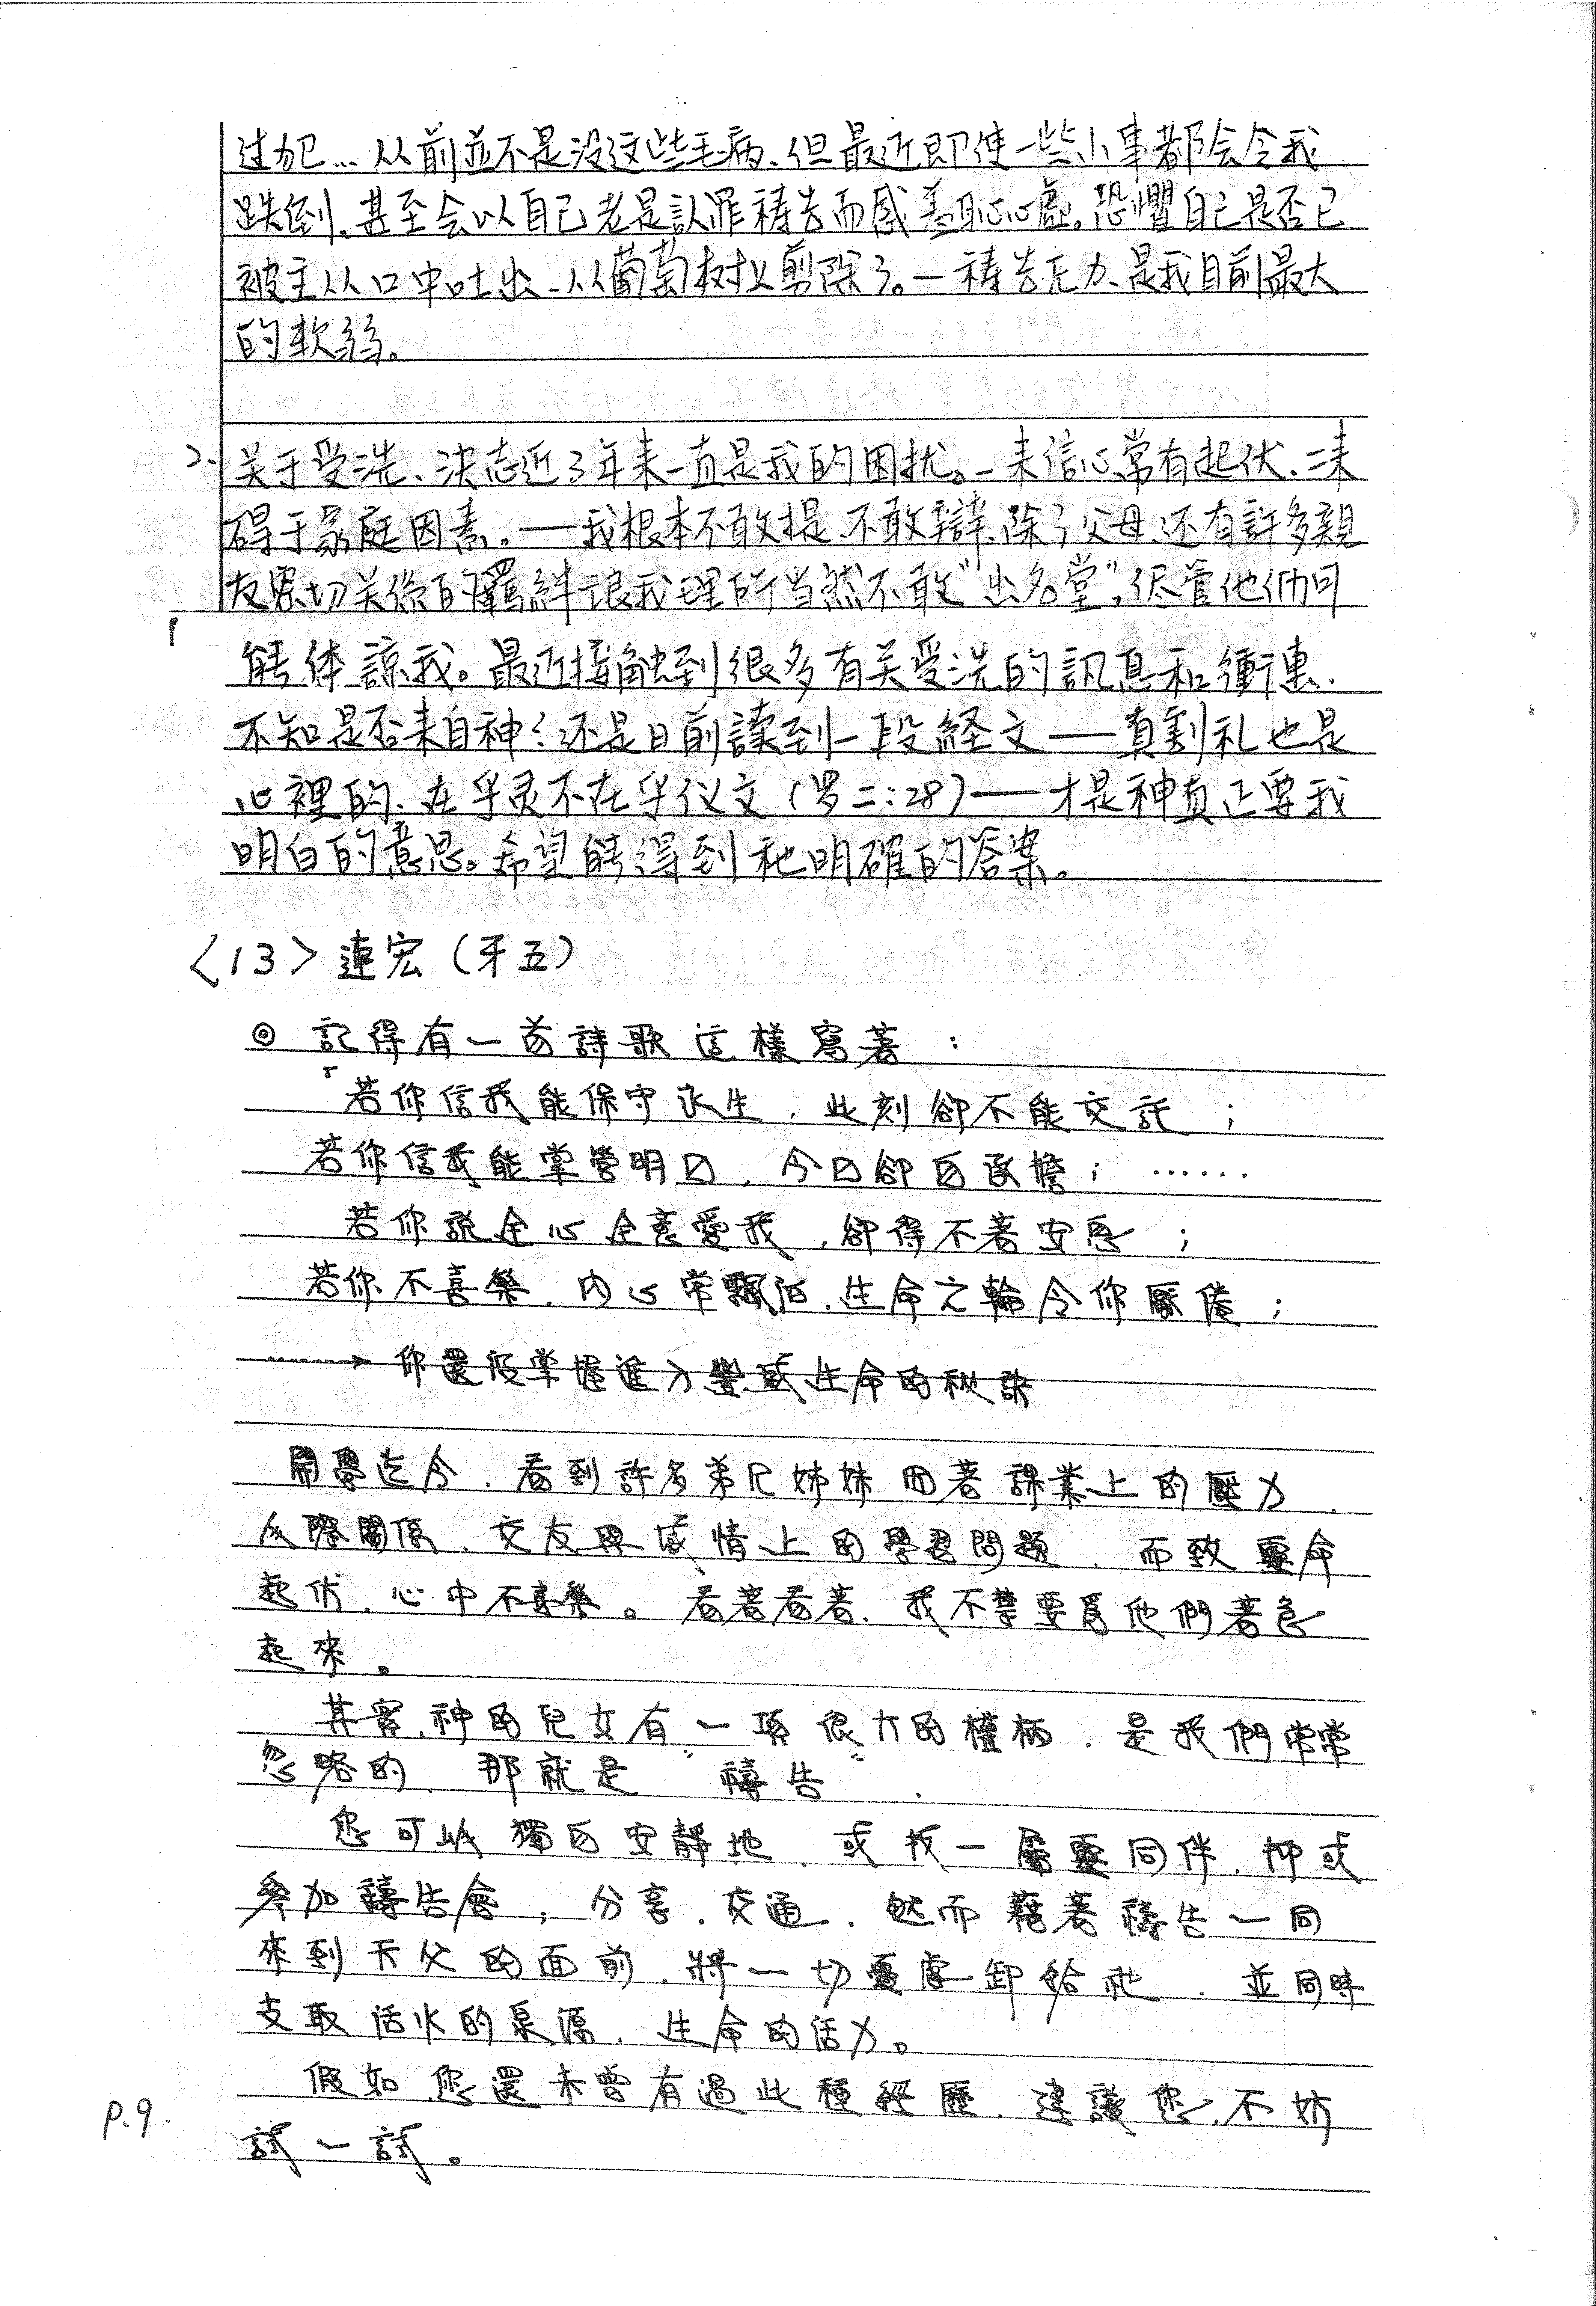 过犯…从前並不是没这些毛病、但最近即使一些小事都会令我
跌倒、甚至会以自己老是認罪祷告而感羞恥心虚。恐懼自己是否已
被主从口中吐出、从葡萄树上剪除了。一祷告无力、是我目前最大
的软弱。
2. 关于受洗、決志近3年来一直是我的困扰。一来信心常有起伏、二来
碍于家庭因素。——我根本不敢提、不敢辯、除了父母、还有許多親
友密切关係的羈絆讓我理所当然不敢"出名堂"，侭管他们可
能体諒我。最近接触到很多有关受洗的訊息和衝
不知是否来自神；还是日前讀到一段経文——真割礼也是
心裡的、在乎灵不在乎仪文（罗二：28）——才是神真正要我
明白的意思。希望能得到祂明確的答案。
〈13〉連宏（牙五）
◎ 記得有一首詩歌這樣寫著：
「若你信我能保守永生，此刻卻不能交託；
若你信我能掌管明日，今日卻自承擔；……
若你說全心全意愛我，卻得不著安息；
若你不喜樂，內心常飄泊，生命之輪令你厭倦；
……→你還沒掌握進入豐盛生命的秘訣
開學迄今，看到許多弟兄姊妹因著課業上的壓力、
人際關係、交友與感情上的學習問題，而致靈命
起伏，心中不喜樂。看著看著，我不禁要為他們著急
起來。
其實，神的兒女有一項很大的權柄，是我們常常
忽略的，那就是"禱告"，
您可以獨自安靜地，或找一屬靈同伴，抑或
參加禱告會，分享、交通，然而藉著禱告一同
來到天父的面前，將一切憂慮卸給祂，並同時
支取活水的泉源，生命的活力。
假如您還未曾有過此種經歷，建議您，不妨
試一試。
p.9.